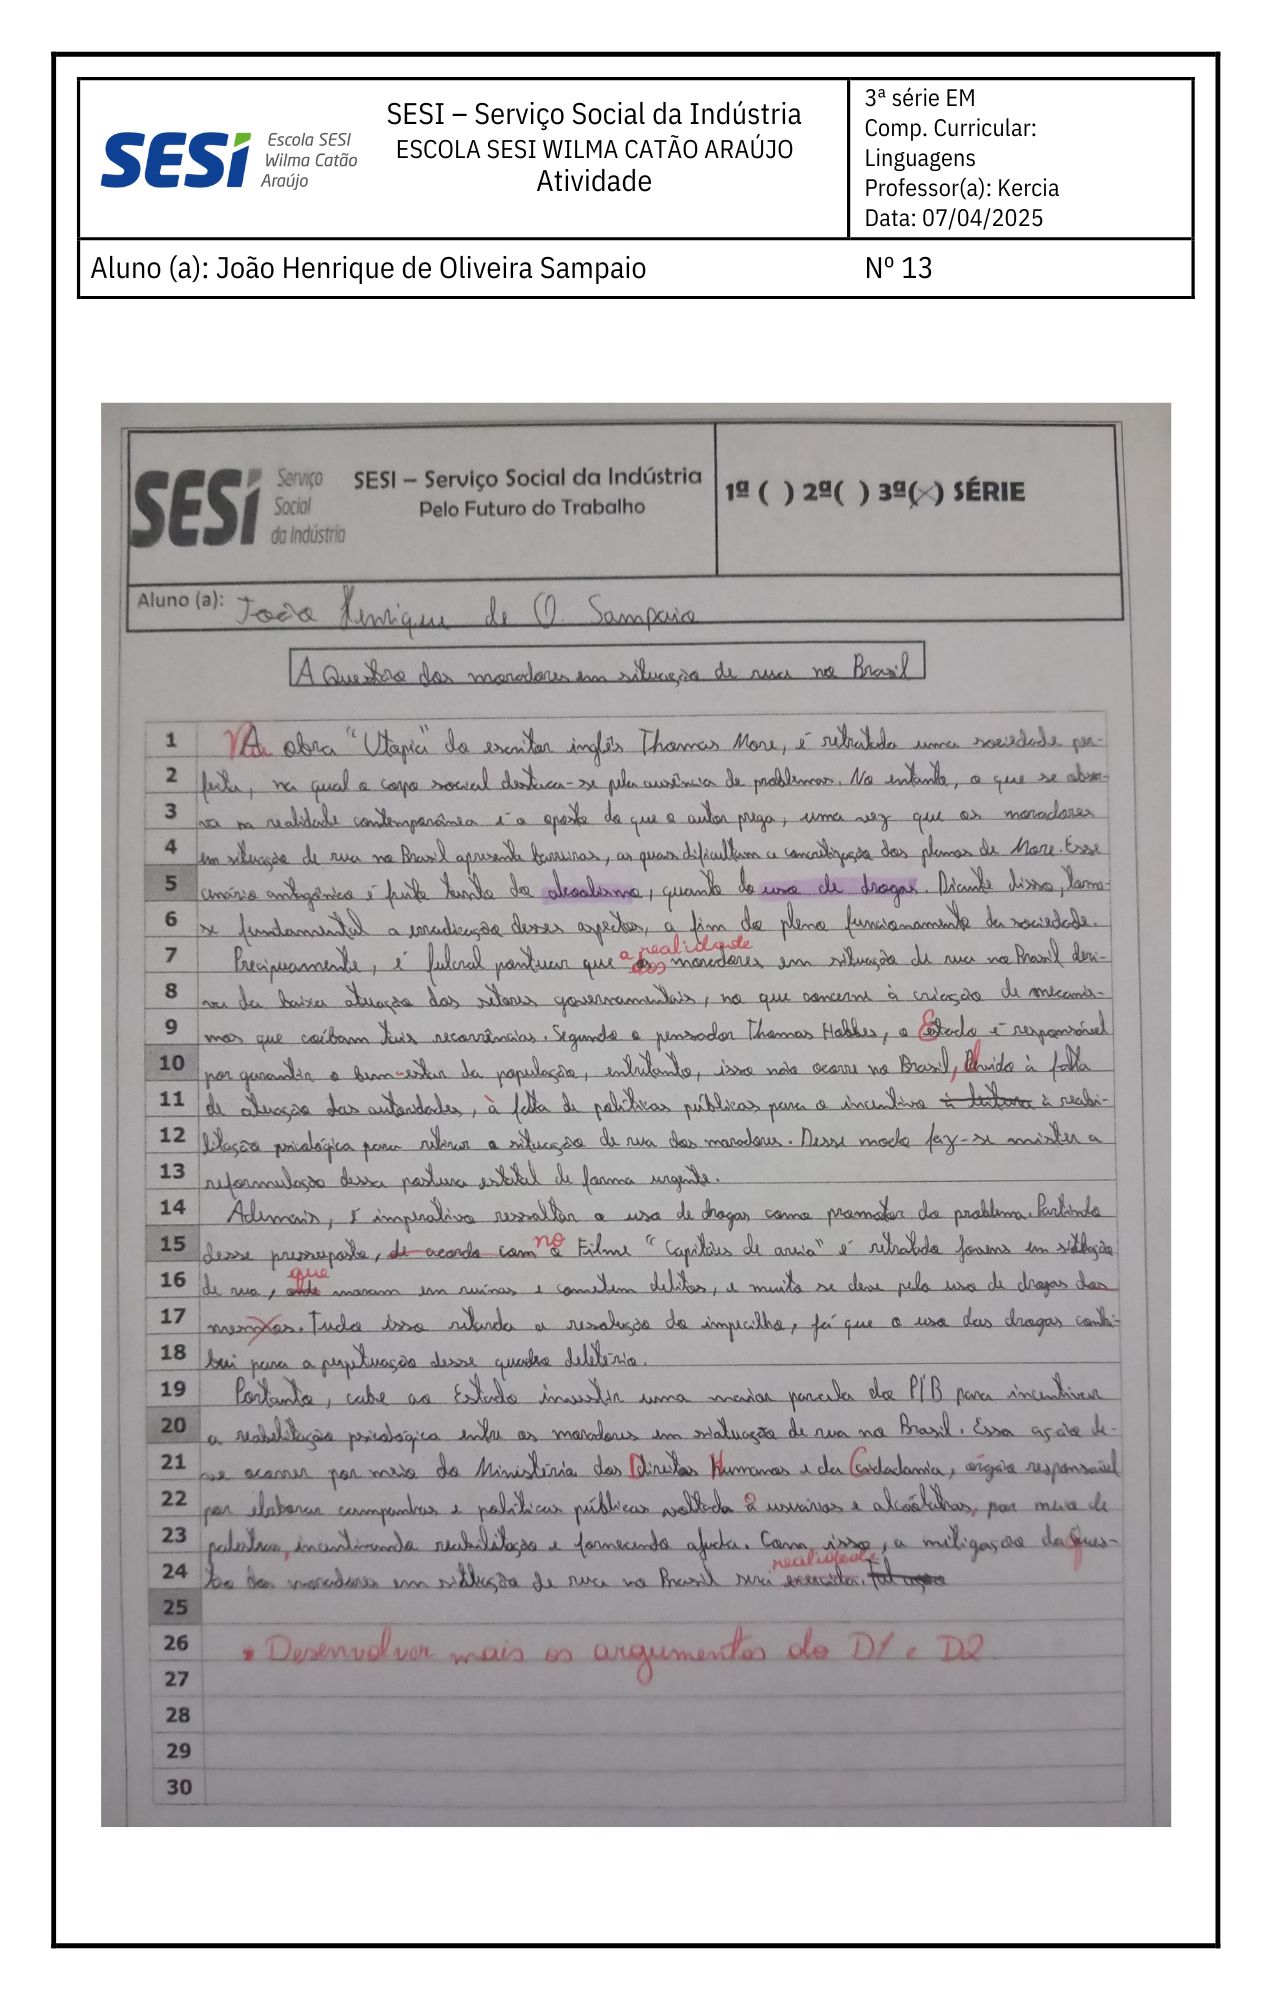 SESI Escola SESI Wilma Catão Araújo
SESI – Serviço Social da Indústria
ESCOLA SESI WILMA CATÃO ARAÚJO
Atividade
3ª série EM
Comp. Curricular:
Linguagens
Professor(a): Kercia
Data: 07/04/2025
Aluno (a): João Henrique de Oliveira Sampaio Nº 13
SESI Serviço Social da Indústria
SESI – Serviço Social da Indústria
Pelo Futuro do Trabalho
1ª ( ) 2ª( ) 3ª(x) SÉRIE
Aluno (a): João Henrique de O. Sampaio
A Questão dos moradores em situação de rua no Brasil
1 Na obra "Utopia" do escritor inglês Thomas More, é retratada uma sociedade per-
2 feita, na qual o corpo social destaca-se pela ausência de problemas. No entanto, o que se obser-
3 va na realidade contemporânea é o oposto do que o autor prega, uma vez que os moradores
4 em situação de rua no Brasil apresenta barreiras, as quais dificultam a concretização dos planos de More. Esse
5 cenário antagônico é fruto tanto do alcoolismo, quanto do uso de drogas. Diante disso, torna-
6 se fundamental a erradicação desses aspectos, a fim do pleno funcionamento da sociedade.
a realidade
7 Precipuamente, é fulcral pontuar que dos moradores em situação de rua no Brasil deri-
8 va da baixa atuação dos setores governamentais, no que concerne à criação de mecanis-
9 mos que coíbam tais recorrências. Segundo o pensador Thomas Hobbes, o Estado é responsável
10 por garantir o bem-estar da população, entretanto, isso não ocorre no Brasil, devido à falta
11 de atuação das autoridades, à falta de políticas públicas para o incentivo à leitura à reabi-
12 litação psicológica para retirar a situação de rua dos moradores. Desse modo faz-se mister a
13 reformulação dessa postura estatal de forma urgente.
14 Ademais, é imperativo ressaltar o uso de drogas como promotor do problema. Partindo
no
15 desse pressuposto, de acordo com o Filme "Capitães de areia" é retratado jovens em situação
que
16 de rua, onde moram em ruínas e cometem delitos, e muito se deve pelo uso de drogas dos
17 mesmos. Tudo isso retarda a resolução do impecilho, já que o uso das drogas contri-
18 bui para a perpetuação desse quadro deletério.
19 Portanto, cabe ao Estado investir uma maior parcela do PIB para incentivar
20 a reabilitação psicológica entre os moradores em siatuação de rua no Brasil. Essa ação de-
21 ve ocorrer por meio do Ministério dos Direitos Humanos e da Cidadania, órgão responsável
22 por elaborar campanhas e políticas públicas voltada a usuários e alcoólatras, por meio de
23 palestras, incentivando reabilitação e fornecendo ajuda. Com isso, a mitigação da Ques-
realidade
24 tão dos moradores em situação de rua no Brasil será exercida. Tal ação
25
26 * Desenvolver mais os argumentos do D1 e D2.
27
28
29
30